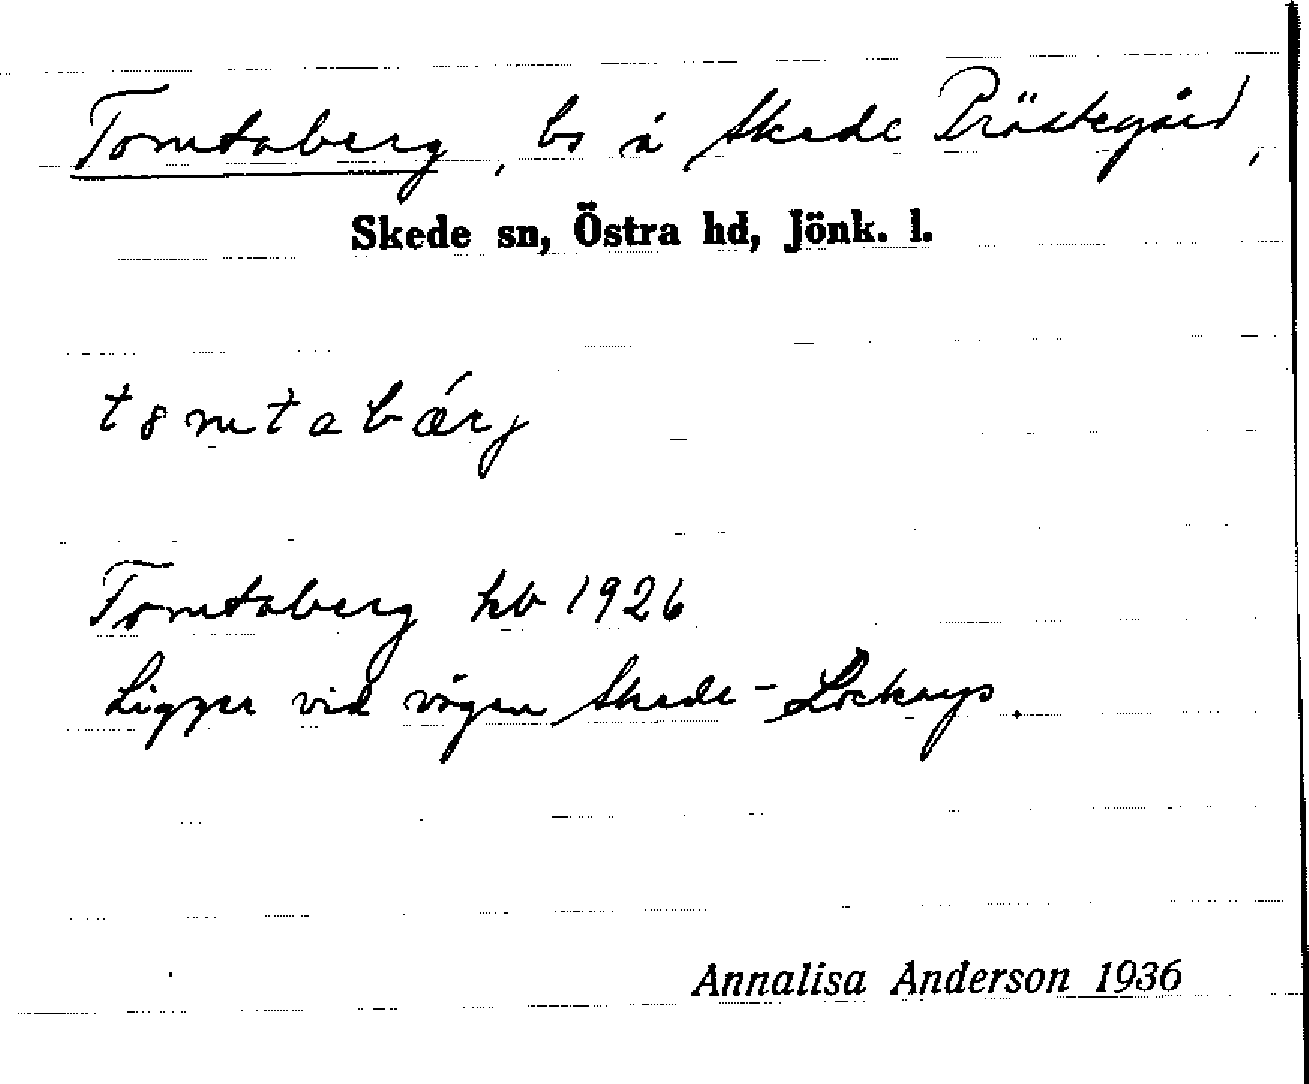 Tomtaberg, bs å Skede Prästegård,
Skede sn, Östra hd, Jönk. l.
t8mtabærj
Tomtaberg hb 1926
Ligger vid vägen Skede-Lockarps.
Annalisa Anderson 1936